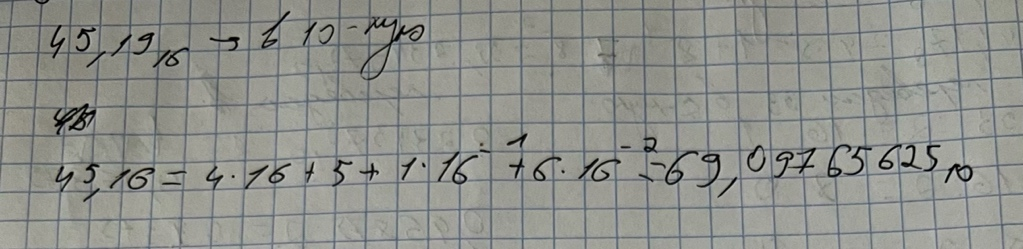 45,19₁₆ → в 10-ную
45,16 = 4·16 + 5 + 1·16⁻¹ + 6·16⁻² = 69,09765625₁₀